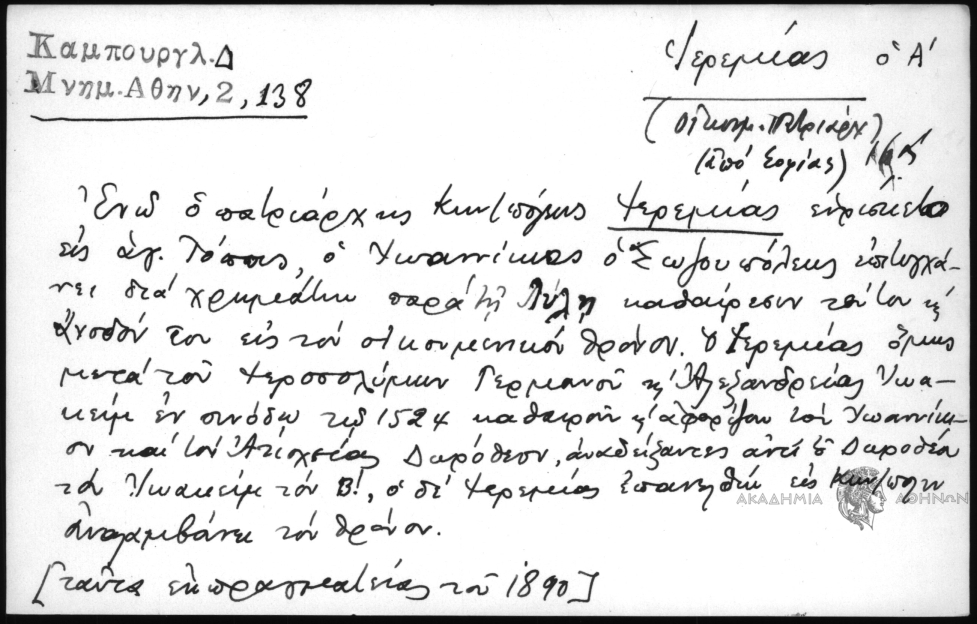 Καμπουργλ. Δ
Μνημ. Αθην, 2, 138
Ἱερεμίας ὁ Α΄
(οἰκουμ. πατριάρχ)
(ἀπό Σοφίας)
Ἐνῶ ὁ πατριάρχης Κων/πόλεως Ἱερεμίας εὑρίσκετο
εἰς ἁγ. Τόπους, ὁ Ἰωαννίκιος ὁ Σωζουπόλεως ἐπιτυγχά-
νει διά χρημάτων παρά τῇ Πύλῃ καθαίρεσιν τούτου κ
ἄνοδόν του εἰς τόν οἰκουμενικόν θρόνον. Ὁ Ἱερεμίας ὅμως
μετά τοῦ Ἱεροσολύμων Γερμανοῦ κ Ἀλεξανδρείας Ἰωα-
κείμ ἐν συνόδῳ τῷ 1524 καθαιροῦν κ ἀφορίζουν τόν Ἰωαννίκι-
ον καί τόν Ἀντιοχείας Δωρόθεον, ἀναδείξαντες ἀντί τοῦ Δωροθέου
τόν Ἰωακείμ τόν Β!, ὁ δέ Ἱερεμίας ἐπανελθών εἰς Κων/πολιν
ἀναλαμβάνει τόν θρόνον.
[ταῦτα ἐκ πραγματείας τοῦ 1890]
ΑΚΑΔΗΜΙΑ ΑΘΗΝΩΝ